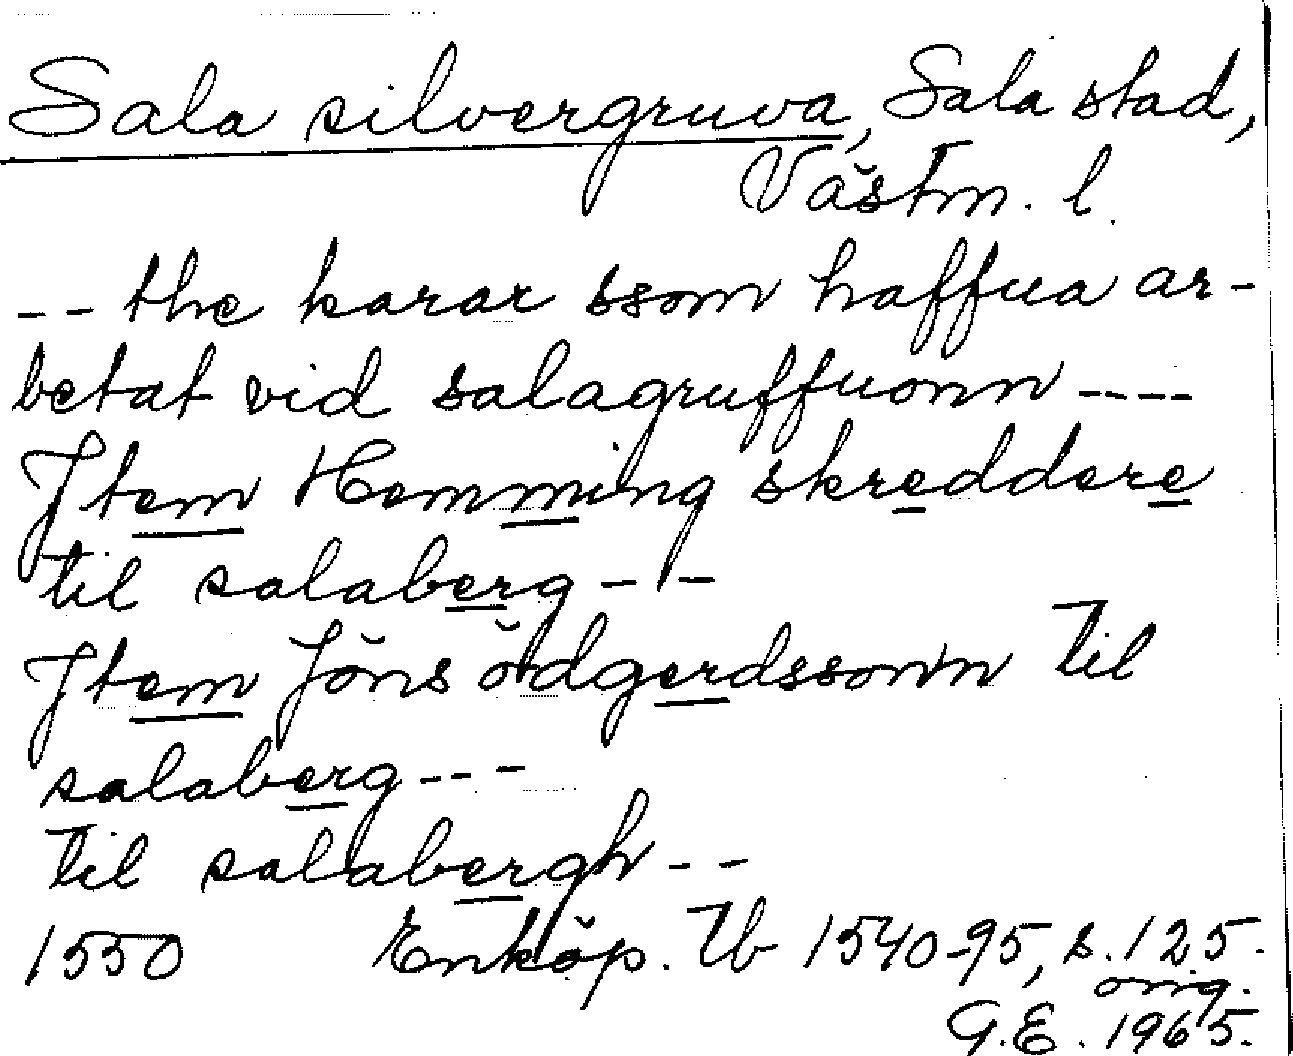 Sala silvergruva, Sala stad,
Västm. l.
-- the karar ssom haffua ar-
betat vid salagruffuonn ----
Jtem Hemming skreddere
til salaberg - - -
Jtem Jöns ödgerdssonn til
salaberg ---
til salabergh --
1550 Enköp. Tb 1540-95, s. 125.
orig.
G.E. 1965.